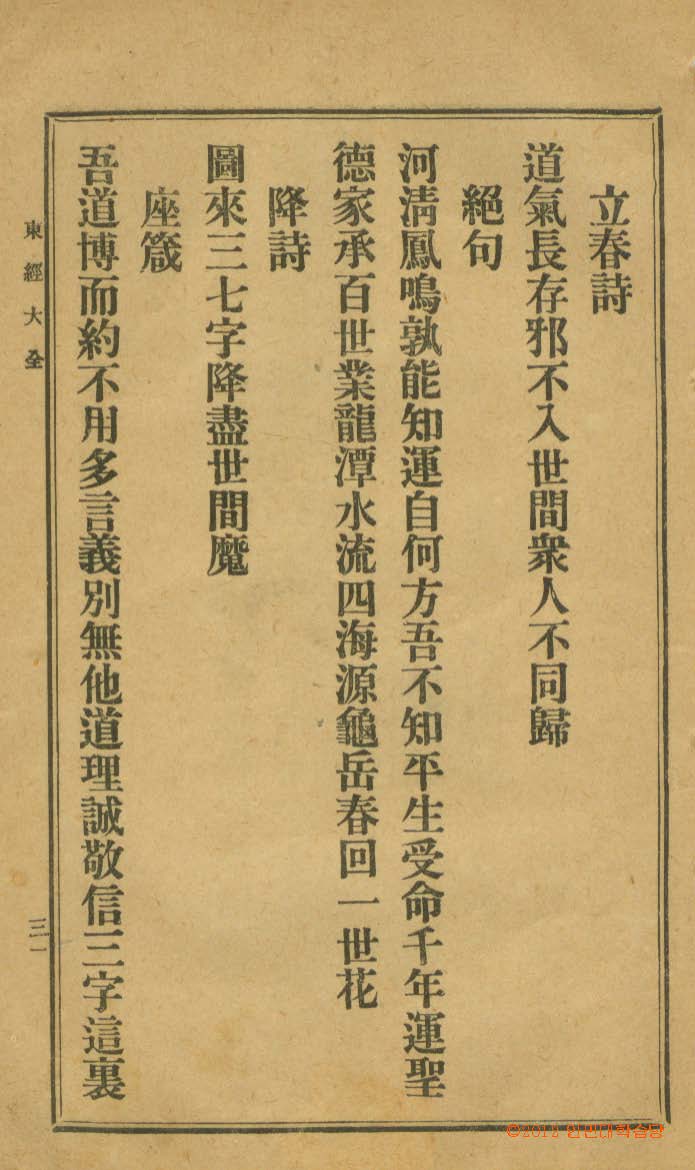 立春詩
道氣長存邪不入世間衆人不同歸
絕句
河淸鳳鳴孰能知運自何方吾不知平生受命千年運聖
德家承百世業龍潭水流四海源龜岳春回一世花
降詩
圖來三七字降盡世間魔
座箴
吾道博而約不用多言義別無他道理誠敬信三字這裏
東經大全
三一
©2012 인민대학습당